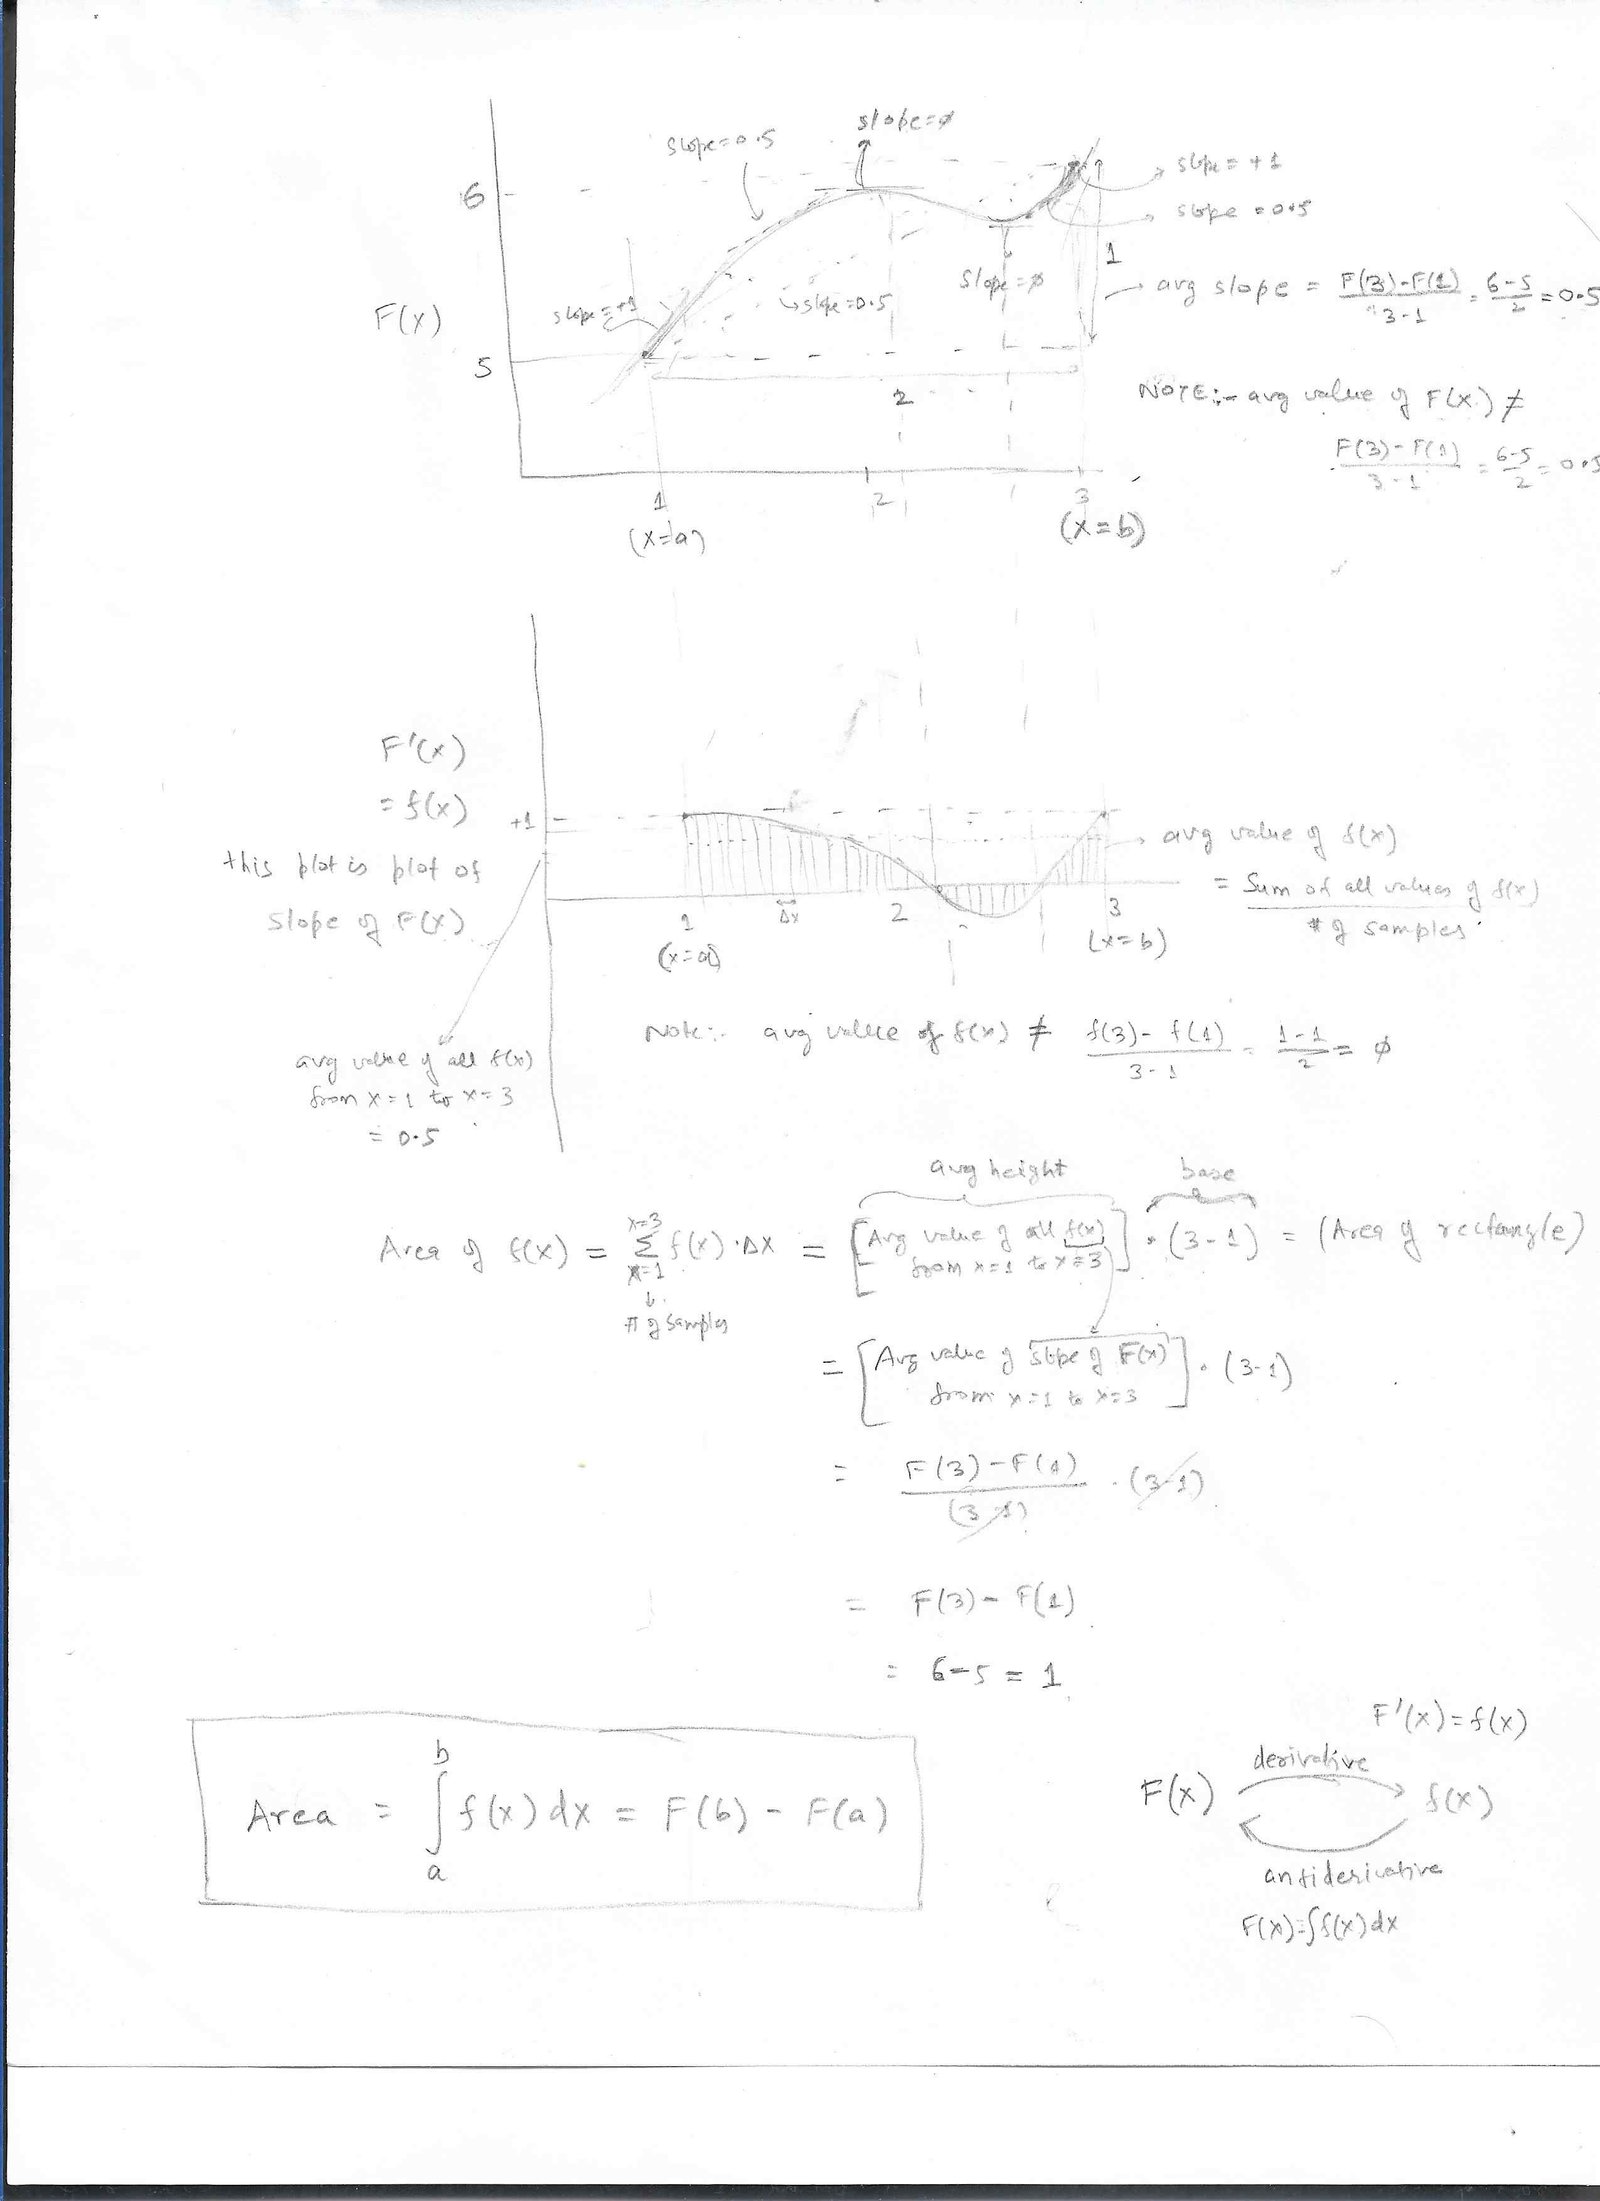 slope=0
slope=0.5
slope=+1
slope=0.5
6
1
slope=0
avg slope = F(3)-F(1) / 3-1 = 6-5 / 2 = 0.5
slope=+1
slope=0.5
F(x)
5
2
NOTE:- avg value of F(x) ≠
F(3)-F(1) / 3-1 = 6-5 / 2 = 0.5
1
2
3
(x=a)
(x=b)
F'(x)
= f(x)
+1
this plot is plot of
slope of F(x)
avg value of f(x)
= Sum of all values of f(x) / # of samples
1
Δx
2
3
(x=a)
(x=b)
Note:- avg value of f(x) ≠ f(3)-f(1) / 3-1 = 1-1 / 2 = 0
avg value of all f(x)
from x=1 to x=3
= 0.5
avg height
base
Area of f(x) = x=3 Σ x=1 f(x)·Δx = [Avg value of all f(x) from x=1 to x=3] · (3-1) = (Area of rectangle)
# of samples
= [Avg value of slope of F(x) from x=1 to x=3] · (3-1)
= F(3)-F(1) / (3-1) · (3-1)
= F(3)-F(1)
= 6-5 = 1
Area = ∫ b a f(x) dx = F(b) - F(a)
F'(x)=f(x)
derivative
F(x)
f(x)
antiderivative
F(x)=∫f(x)dx